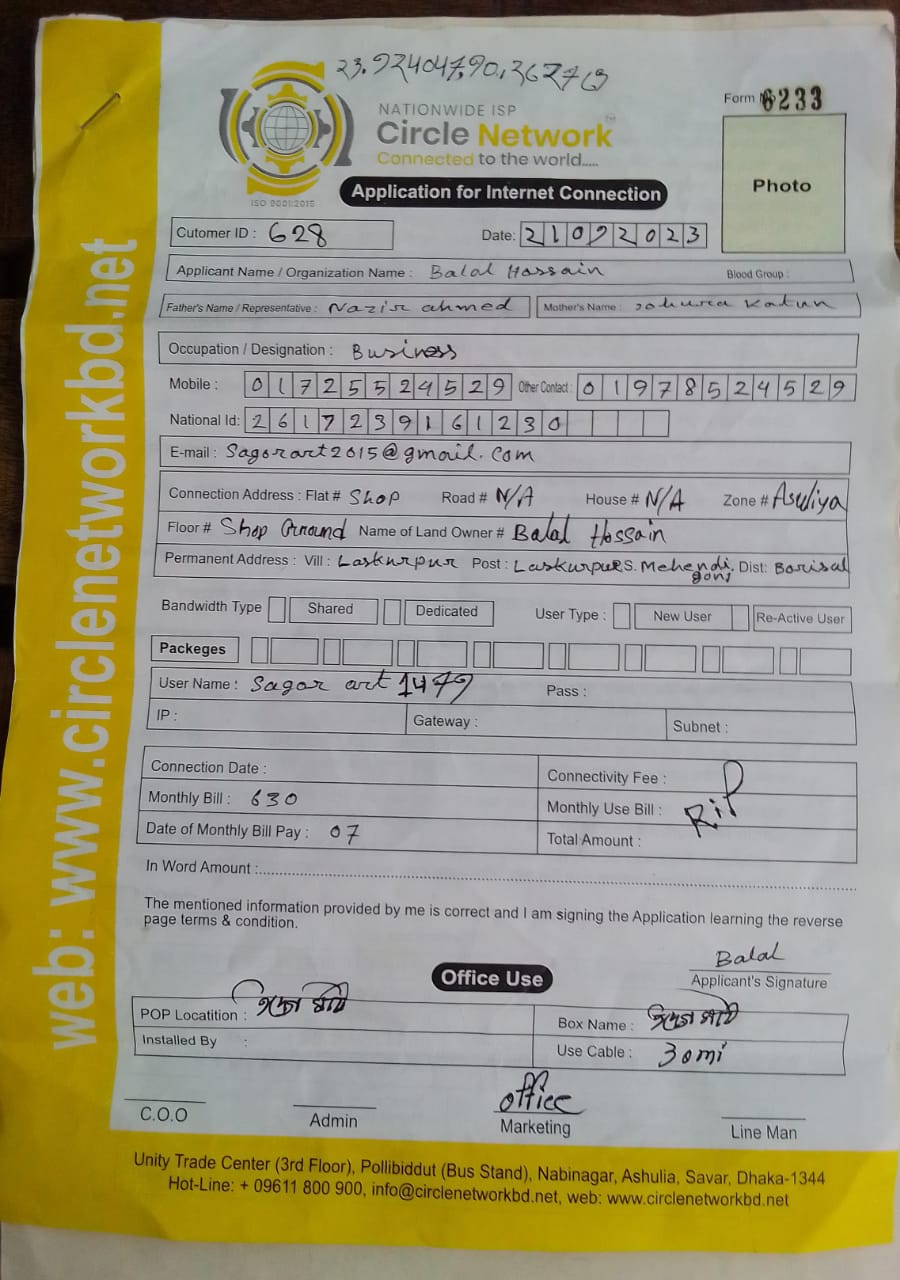 23.92404790.262769
NATIONWIDE ISP
Circle Network™
Connected to the world.....
ISO 9001:2015
Form № 6233
Photo
Application for Internet Connection
Cutomer ID : 628 Date: 21092023
Applicant Name / Organization Name : Balal Hossain Blood Group :
Father's Name / Representative : Nazir ahmed Mother's Name : Katun
Occupation / Designation : Business
Mobile : 01725524529 Other Contact : 01978524529
National Id: 2617239161230
E-mail : Sagorart2015@gmail.com
Connection Address : Flat# Shop Road # N/A House # N/A Zone # Asuliya
Floor # Shop Ground Name of Land Owner # Balal Hossain
Permanent Address : Vill : Laskurpur Post : Laskurpur P.S. Mehendi gonj Dist: Borisal
Bandwidth Type Shared Dedicated User Type : New User Re-Active User
Packeges
User Name : Sagor art 1479 Pass :
IP : Gateway : Subnet :
Connection Date : Connectivity Fee :
Monthly Bill : 630 Monthly Use Bill :
Date of Monthly Bill Pay : 07 Total Amount :
In Word Amount :
The mentioned information provided by me is correct and I am signing the Application learning the reverse
page terms & condition.
Balal
Office Use Applicant's Signature
POP Locatition : Box Name :
Installed By : Use Cable : 30mi
office
C.O.O Admin Marketing Line Man
Unity Trade Center (3rd Floor), Pollibiddut (Bus Stand), Nabinagar, Ashulia, Savar, Dhaka-1344
Hot-Line: + 09611 800 900, info@circlenetworkbd.net, web: www.circlenetworkbd.net
web: www.circlenetworkbd.net